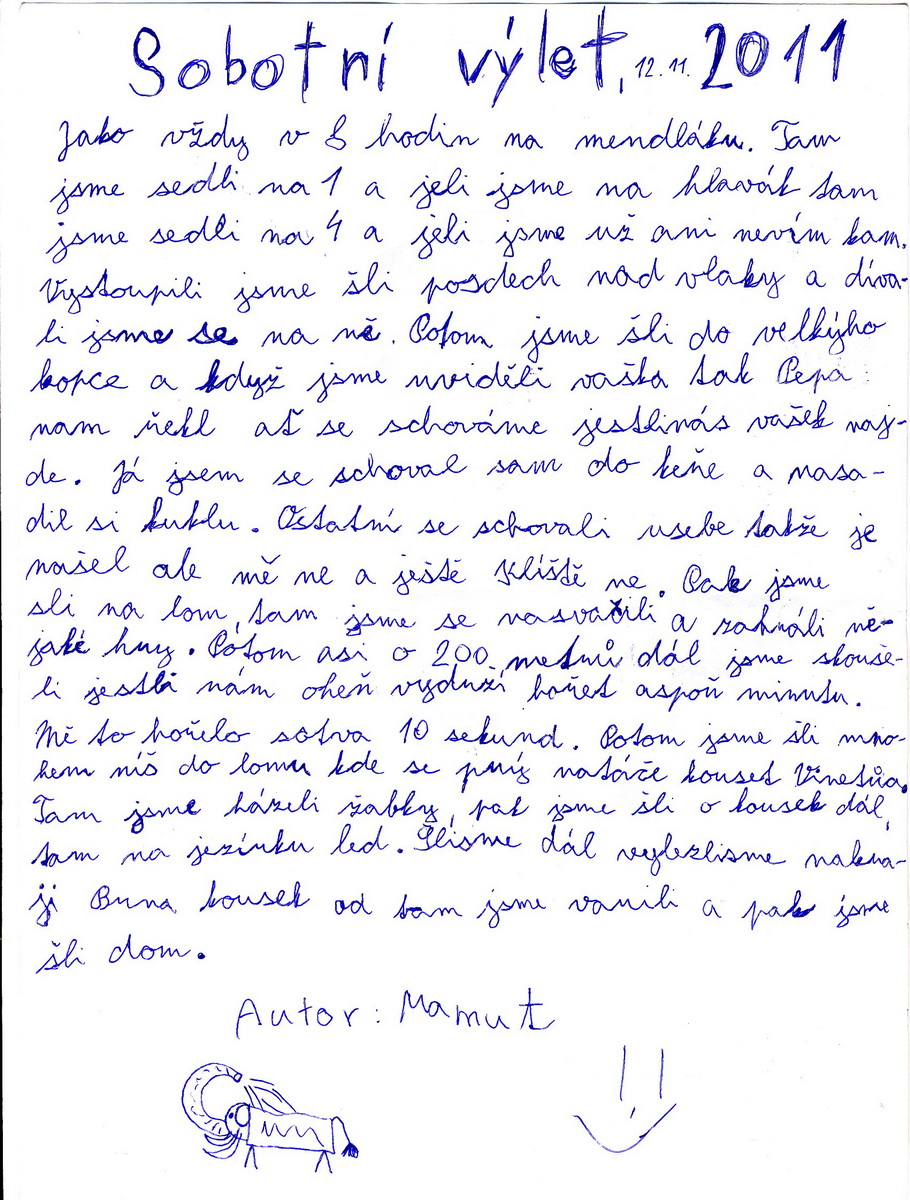 Sobotní výlet, 12.11. 2011
Jako vždy v 8 hodin na mendláku. Tam
jsme sedli na 1 a jeli jsme na hlavák tam
jsme sedli na 4 a jeli jsme už ani nevím kam.
Vystoupili jsme šli posdech nad vlaky a díva-
li jsme se na ně. Potom jsme šli do velkýho
kopce a když jsme uviděli vaška tak Pepa
nam řekl ať se schováme jestlinás vašek naj-
de. Já jsem se schoval sam do keře a nasa-
dil si kuklu. Ostatní se schovali usebe takže je
našel ale mě ne a ještě Klíště ne. Pak jsme
sli na lom, tam jsme se nasvačili a zahráli ně-
jaké hry. Potom asi o 200 metrů dál jsme skouše-
li jestli nám oheň vydrží hořet aspoň minutu.
Mě to hořelo sotva 10 sekund. Potom jsme šli mno-
hem níš do lomu kde se prý natáče kouset Vinetůa.
Tam jsme házeli žabky, pak jsme šli o kousek dál,
tam na jezírku led. Šlisme dál vylezlisme nakra-
ji Brna kousek od tam jsme vařili a pak jsme
šli dom.
Autor: Mamut